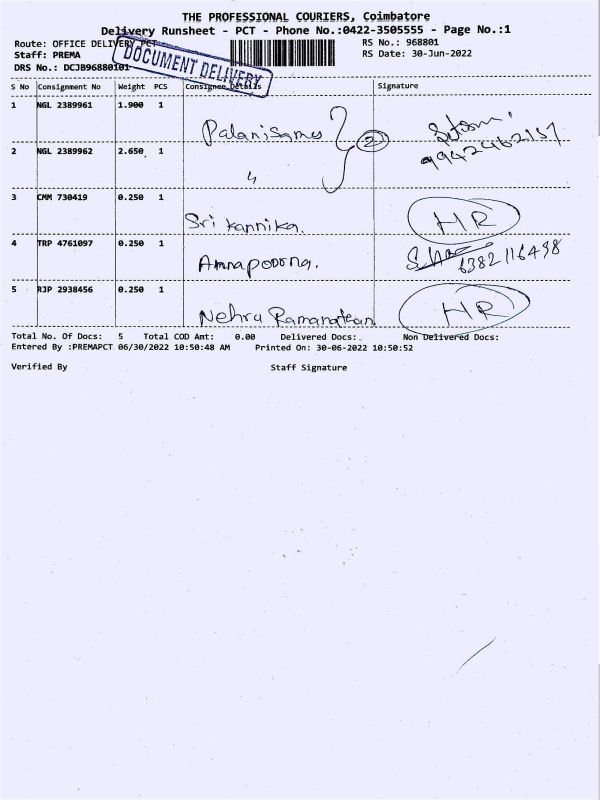 THE PROFESSIONAL COURIERS, Coimbatore
Delivery Runsheet - PCT - Phone No.:0422-3505555 - Page No.:1
Route: OFFICE DELIVERY PCT
RS No.: 968801
Staff: PREMA
RS Date: 30-Jun-2022
DOCUMENT DELIVERY
DRS No.: DCJB96880101
S No Consignment No Weight PCS Consignee Details Signature
1 NGL 2389961 1.900 1
Palanisamy 2
9942462157
2 NGL 2389962 2.650 1
"
3 CMM 730419 0.250 1
Sri Kannika. HR
4 TRP 4761097 0.250 1
Annapoorna. 6382116498
5 RJP 2938456 0.250 1
Nehru Ramanathan HR
Total No. Of Docs: 5 Total COD Amt: 0.00 Delivered Docs: Non Delivered Docs:
Entered By :PREMAPCT 06/30/2022 10:50:48 AM Printed On: 30-06-2022 10:50:52
Verified By Staff Signature